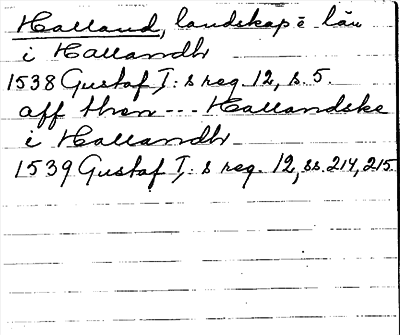 Halland, landskap ē län
i Hallandh
1538 Gustaf I: s reg. 12, s. 5.
aff then --- Hallandske
i Hallandh
1539 Gustaf I: s reg. 12, ss. 214, 215.